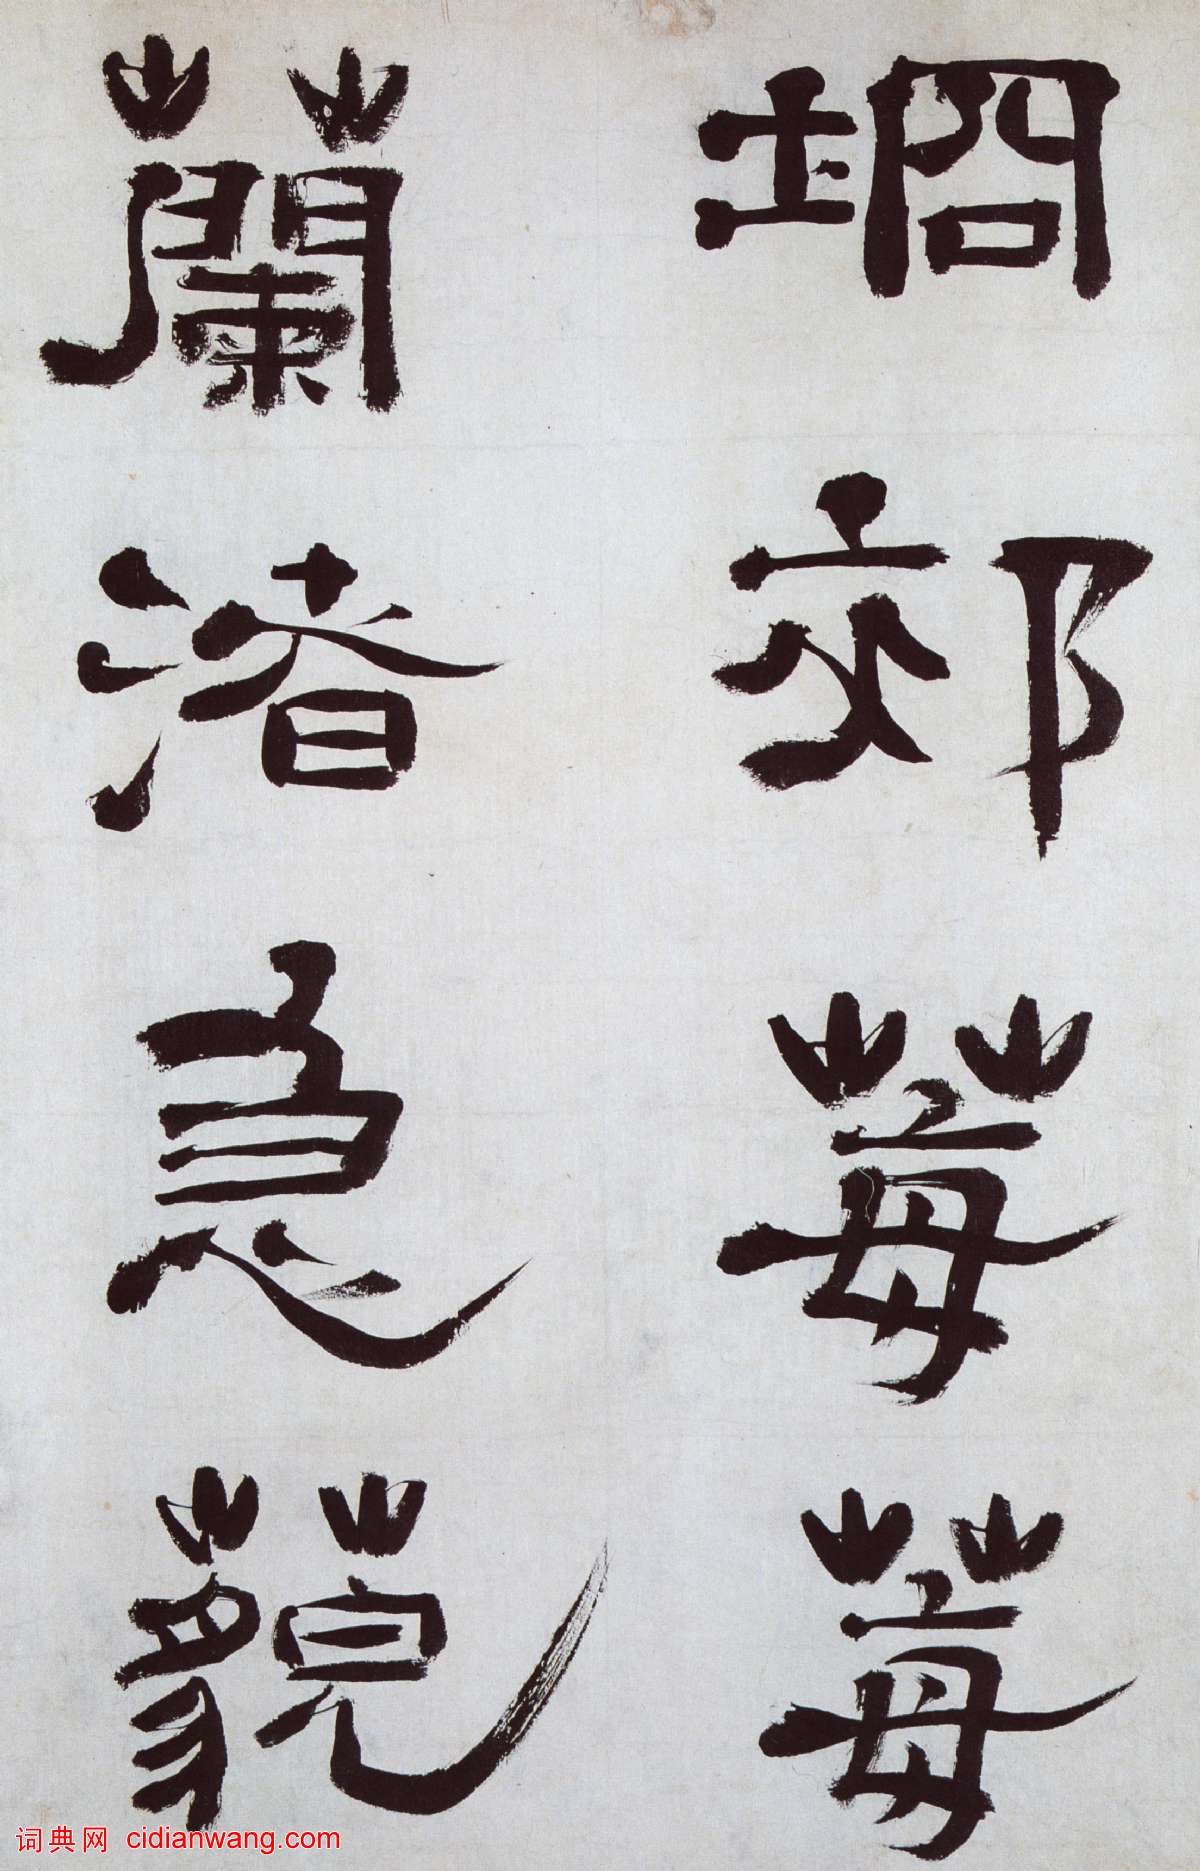 埛郊莓莓
蘭渚急藐
词典网 cidianwang.com